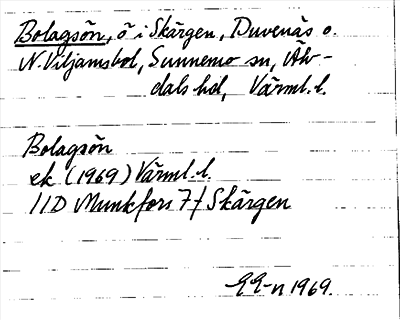 Bolagsön, ö i Skärgen, Duvenäs o.
N. Viljamsbol, Sunnemo sn, Älv-
dals hd, Värml. l.
Bolagsön
ek. (1969) Värml. l.
11D Munkfors 7f Skärgen
1969.